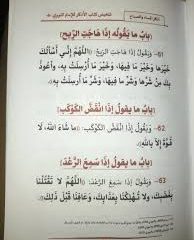 أذكار المساء والصباح
تلخيص كتاب الأذكار للإمام النووي
[بابُ ما يَقُولُه إذا هَاجَتِ الرِّيح]
61- ويَقُولُ: إذا هَاجَتِ الرِّيحُ: (اللَّهُمَّ إِنِّي أَسْأَلُكَ
خَيْرَهَا وَخَيْرَ مَا فِيهَا، وَخَيْرَ مَا أُرْسِلَتْ بِهِ، وَأَعُوذُ
بِكَ مِنْ شَرِّهَا وَشَرِّ مَا فِيهَا، وَشَرِّ مَا أُرْسِلَتْ بِهِ).
[بابُ ما يقولُ إذا انْقَضَّ الكَوْكَب]
62- وَيَقُولُ إذا انْقَضَّ الكَوْكَبُ: (مَا شَاءَ اللهُ، لَا قُوَّةَ
إِلَّا بِاللهِ).
[بابُ ما يقولُ إذا سَمِعَ الرَّعْدَ]
63- وَيَقُولُ إذا سَمِعَ الرَّعْدَ: (اللَّهُمَّ لَا تَقْتُلْنَا
بِغَضَبِكَ، وَلَا تُهْلِكْنَا بِعَذَابِكَ، وَعَافِنَا قَبْلَ ذَلِكَ).